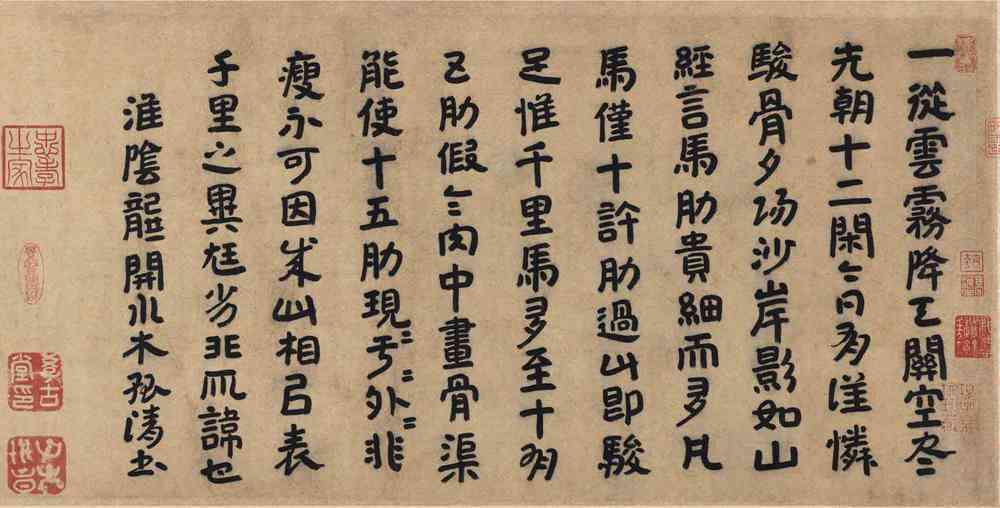 一從雲霧降天關空盡
先朝十二閑今日有誰憐
駿骨夕陽沙岸影如山
經言馬肋貴細而多凡
馬僅十許肋過此即駿
足惟千里馬多至十有
五肋假令肉中畫骨渠
能使十五肋現〻於〻外〻非
瘦不可因成此相以表
千里之異尫劣非所諱也
淮陰龔開水木孤清書